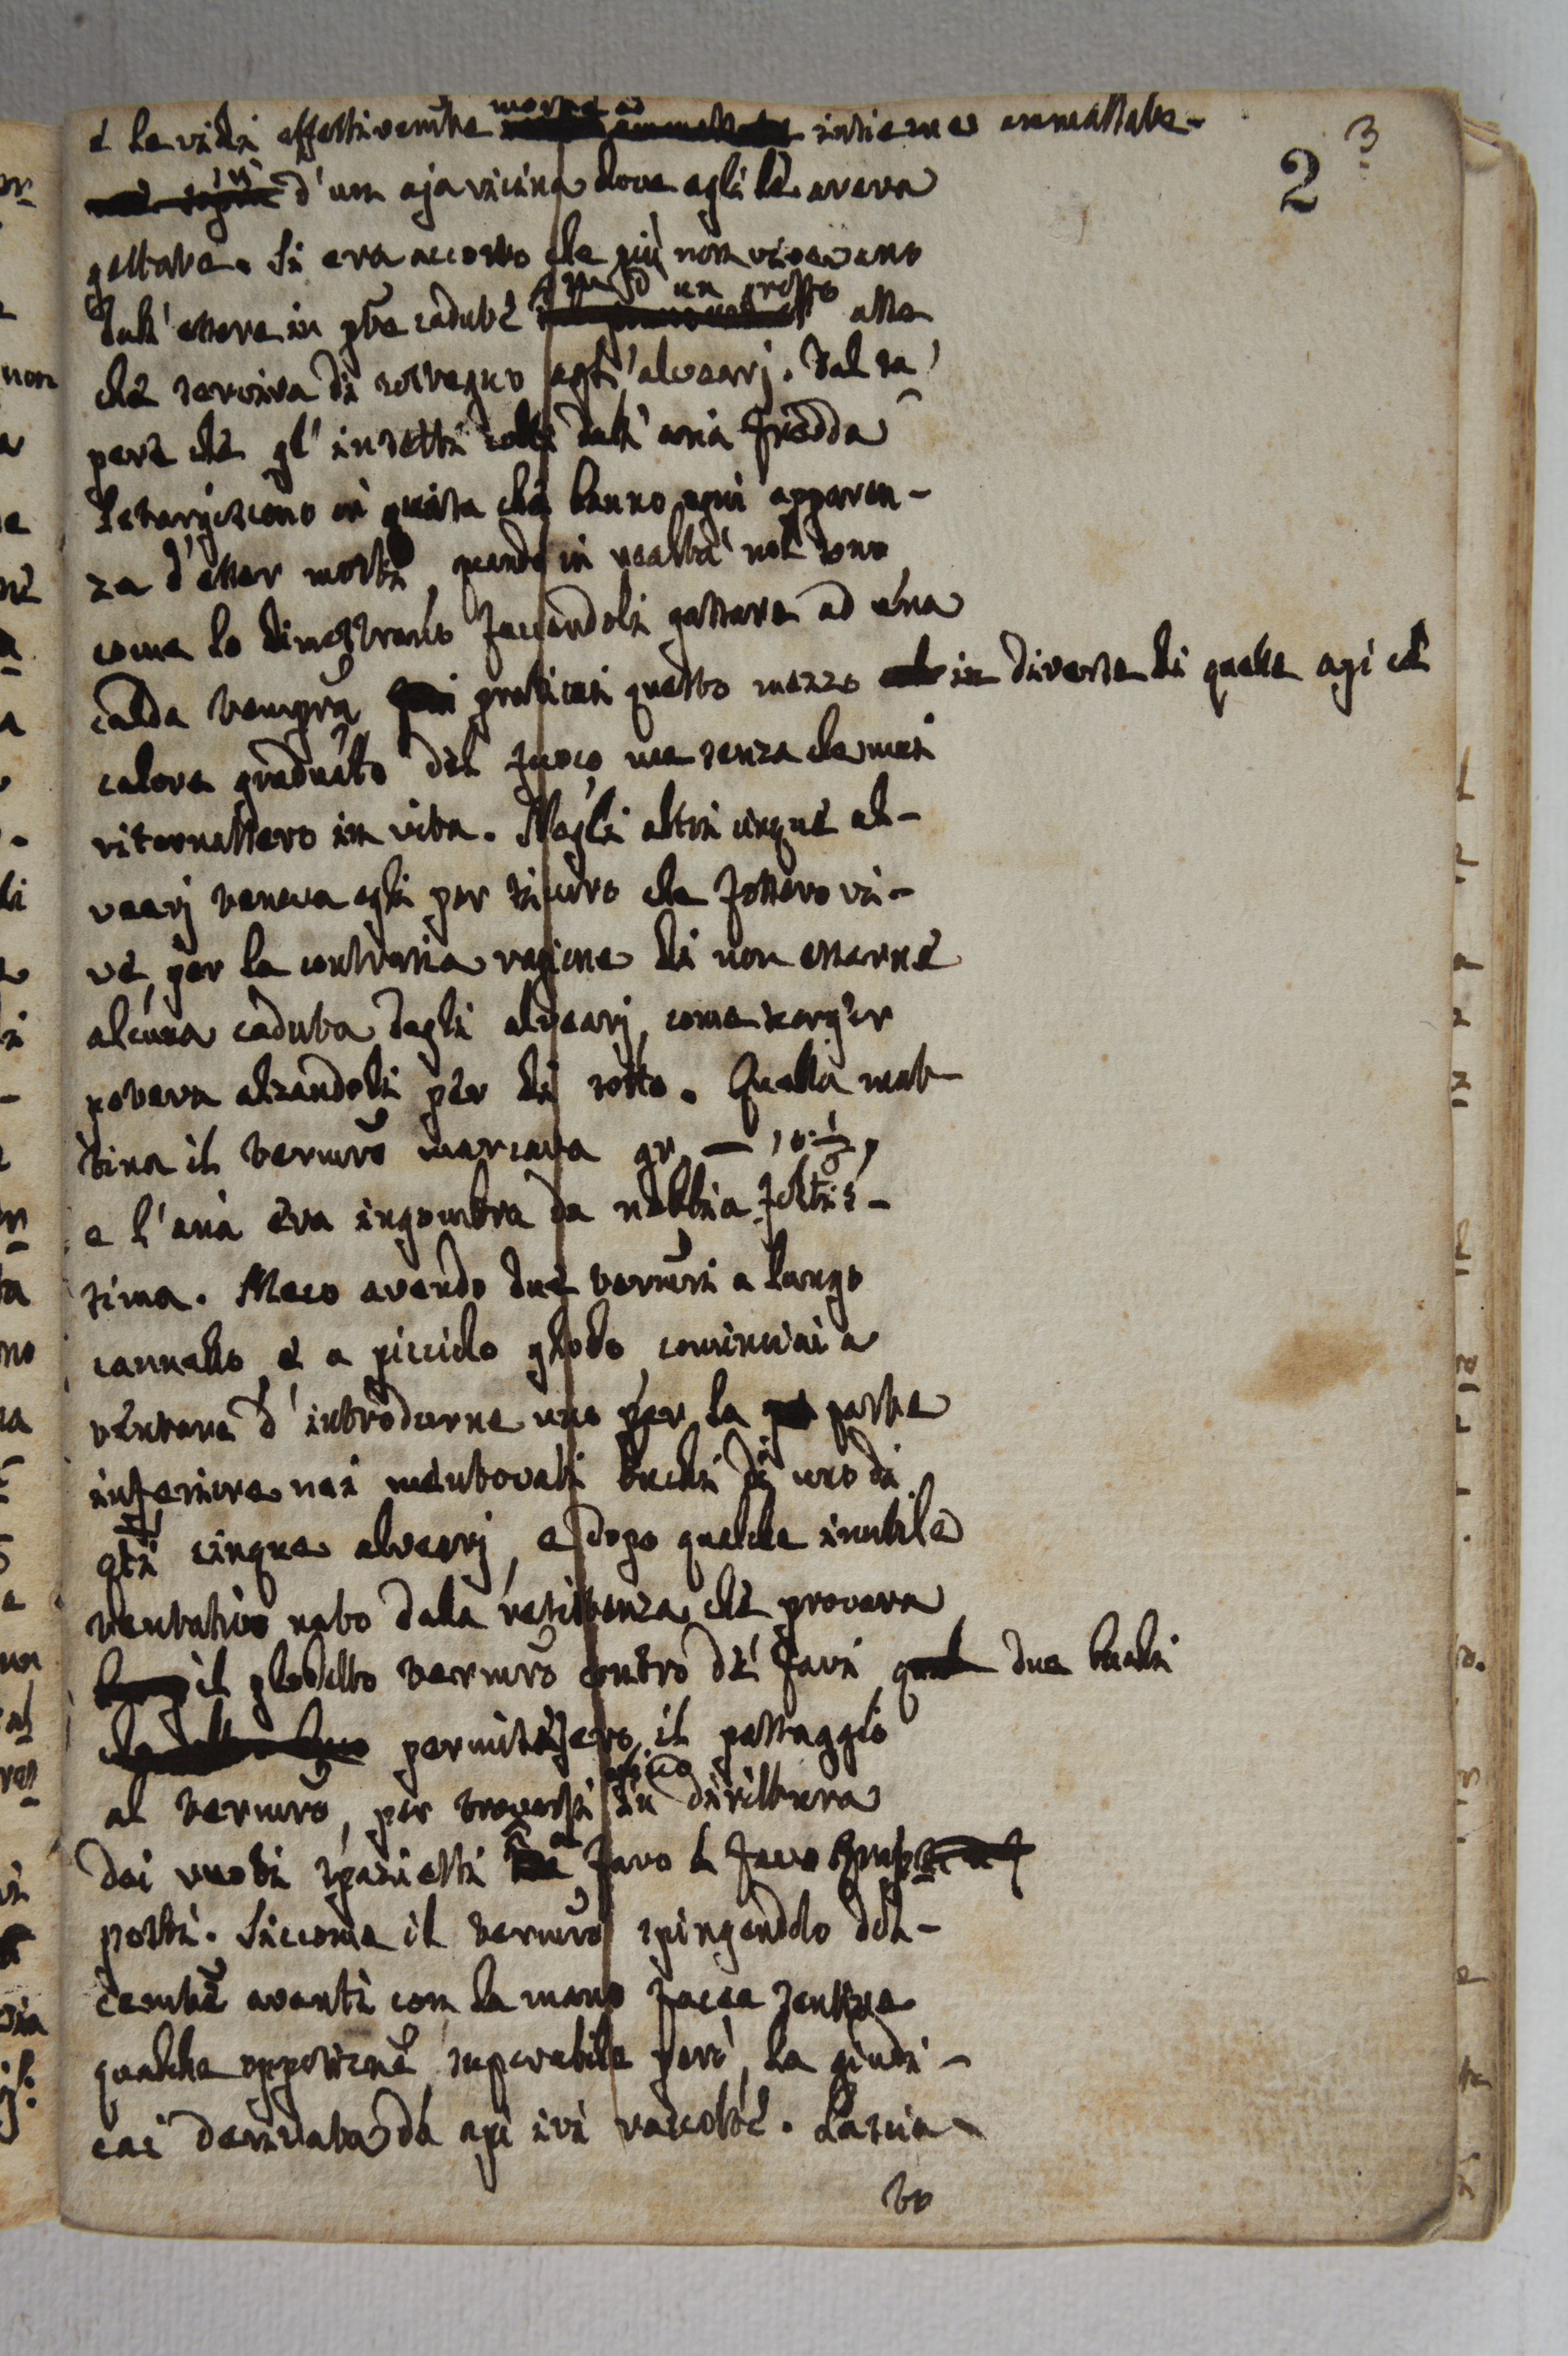 3
2
e le vidi effettivamte morte ed insieme ammassate
su d'un aja vicina dove egli le aveva
gettate. Si era accorto che più non vivevano
dall'essere in pte cadute su d'un grosso asse
che serviva di sostegno agli alvearj. Dal sa-
pere che gl'insetti colti dall'aria fredda
letargiscono in guisa che hanno ogni apparen-
za d'esser morti, quando in realtà nol sono
come lo dimostrano facendoli passare ad una
calda tempra praticai questo mezzo in diverse di quelle api col
calore graduato del fuoco, ma senza che mai
ritornassero in vita. Negli altri cinque al-
vearj teneva egli per sicuro che fossero vi-
ve, per la contraria ragione di non esserne
alcuna caduta dagli alvearj, come scorger
poteva alzandoli per di sotto. Quella mat-
tina il termro marcava gr. — 10 ½,
e l'aria era ingombra da nebbia foltis-
sima. Meco avendo due termri a lungo
cannello, e a picciolo globo, cominciai a
tentare d'introdurne uno per la parte
inferiore nei mentovati buchi di uno di
qti cinque alvearj, e dopo qualche inutile
tentativo nato dalla resistenza che provava
il globetto termro contro de' favi, due buchi
permisero il passaggio
al termro, per trovarsi in dirittura
dei vuoti spazietti favo e favo
posti. Siccome il termro spingendolo dol-
cemte avanti con la mano facea sentire
qualche opposizione superabile però, la giudi-
cai derivata da api ivi raccolte. Lascia-
to